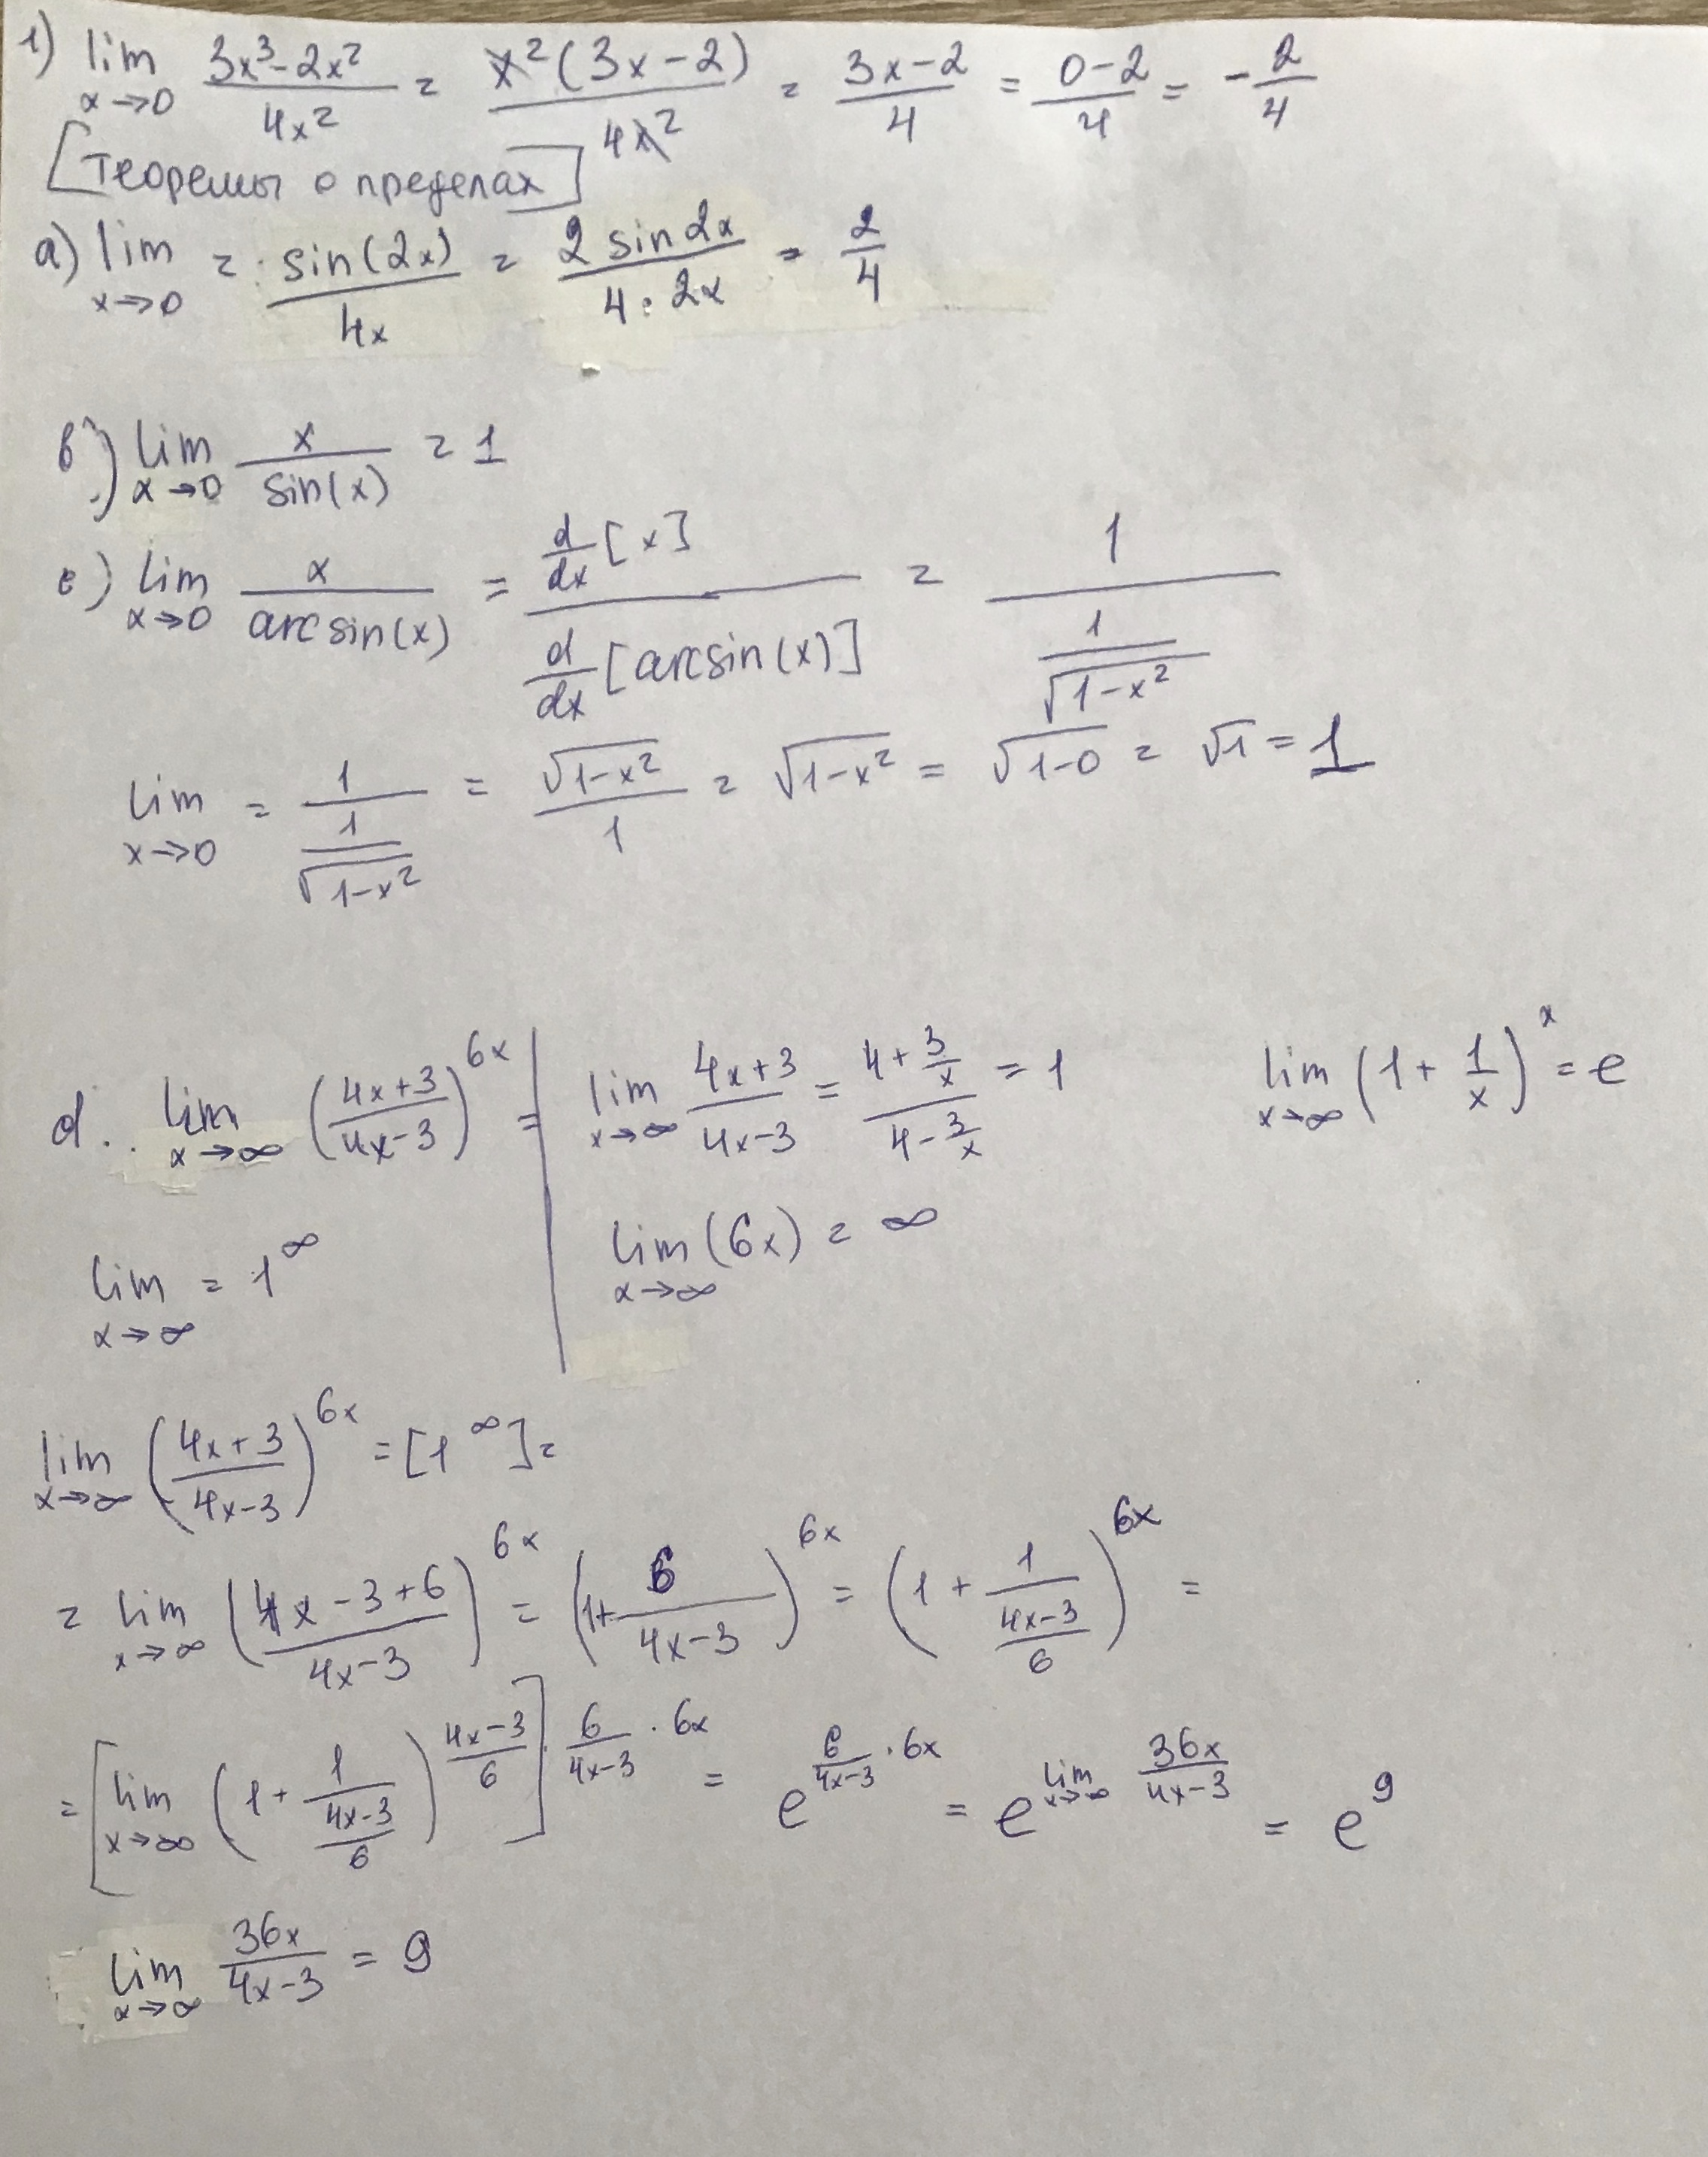 1) lim x→0 (3x³-2x²)/(4x²) = x²(3x-2)/(4x²) = (3x-2)/4 = (0-2)/4 = -2/4
[Теоремы о пределах]
a) lim x→0 = sin(2x)/(4x) = (2 sin 2x)/(4·2x) = 2/4
в) lim x→0 x/sin(x) = 1
c) lim x→0 x/arcsin(x) = (d/dx [x])/(d/dx [arcsin(x)]) = 1/(1/√(1-x²))
lim x→0 = 1/(1/√(1-x²)) = √(1-x²)/1 = √(1-x²) = √(1-0) = √1 = 1
d. lim x→∞ ((4x+3)/(4x-3))^(6x) = | lim x→∞ (4x+3)/(4x-3) = (4+3/x)/(4-3/x) = 1 lim x→∞ (1+1/x)^x = e
lim x→∞ = 1^∞ | lim x→∞ (6x) = ∞
lim x→∞ ((4x+3)/(4x-3))^(6x) = [1^∞] =
= lim x→∞ ((4x-3+6)/(4x-3))^(6x) = (1+6/(4x-3))^(6x) = (1+1/((4x-3)/6))^(6x) =
= [lim x→∞ (1+1/((4x-3)/6))^((4x-3)/6)]^(·6/(4x-3)·6x) = e^(6/(4x-3)·6x) = e^(lim x→∞ 36x/(4x-3)) = e^9
lim x→∞ 36x/(4x-3) = 9